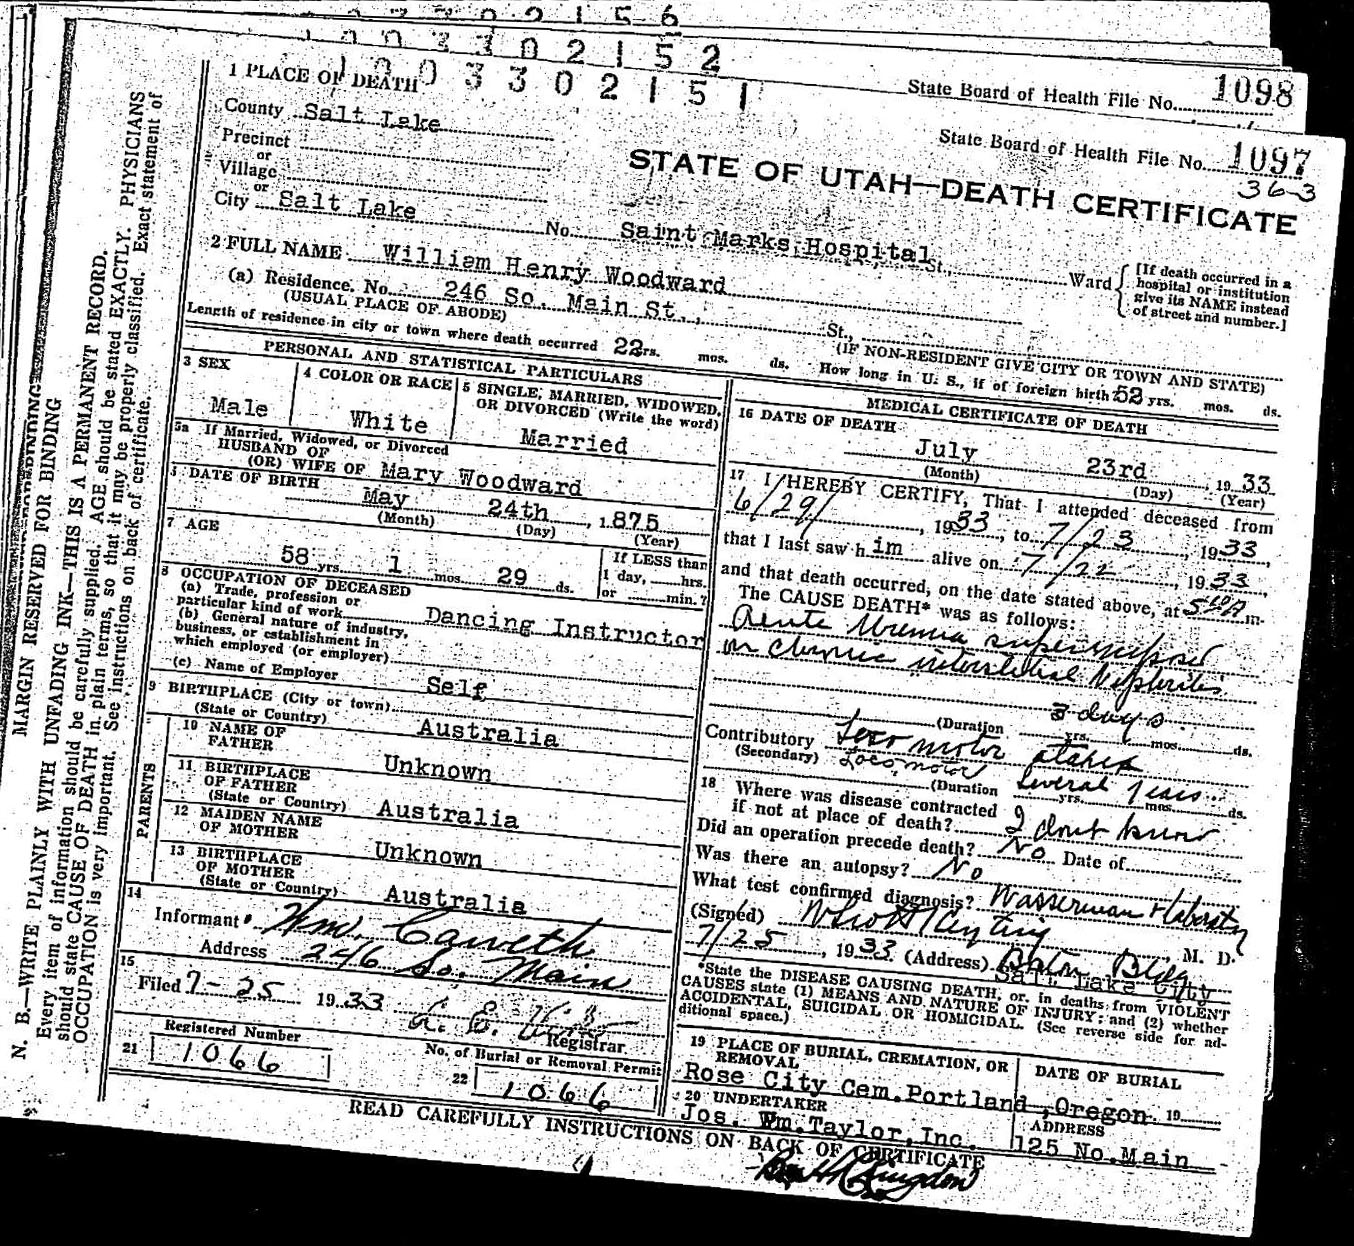 3302156
1003302152
1003302151
State Board of Health File No. 1098
State Board of Health File No. 1097
36-3
STATE OF UTAH—DEATH CERTIFICATE
1 PLACE OF DEATH
County Salt Lake
Precinct
or
Village
or
City Salt Lake No. Saint Marks Hospital St., Ward
[If death occurred in a
hospital or institution
give its NAME instead
of street and number.]
2 FULL NAME William Henry Woodward
(a) Residence, No. 246 So. Main St., St.,
(USUAL PLACE OF ABODE)
(IF NON-RESIDENT GIVE CITY OR TOWN AND STATE)
Length of residence in city or town where death occurred 22 yrs. mos. ds. How long in U. S., if of foreign birth 52 yrs. mos. ds.
PERSONAL AND STATISTICAL PARTICULARS
3 SEX
Male
4 COLOR OR RACE
White
5 SINGLE, MARRIED, WIDOWED,
OR DIVORCED (Write the word)
Married
5a If Married, Widowed, or Divorced
HUSBAND OF
(OR) WIFE OF Mary Woodward
DATE OF BIRTH
May 24th, 1875
(Month) (Day) (Year)
7 AGE
58 yrs. 1 mos. 29 ds.
If LESS than
1 day, hrs.
or min.?
8 OCCUPATION OF DECEASED
(a) Trade, profession or
particular kind of work Dancing Instructor
(b) General nature of industry,
business, or establishment in
which employed (or employer)
(c) Name of Employer Self
9 BIRTHPLACE (City or town)
(State or Country) Australia
PARENTS
10 NAME OF
FATHER Unknown
11 BIRTHPLACE
OF FATHER
(State or Country) Australia
12 MAIDEN NAME
OF MOTHER Unknown
13 BIRTHPLACE
OF MOTHER
(State or Country) Australia
14
Informant Wm.
Address 246 So. Main
15
Filed 7-25 1933
Registrar
Registered Number
21 1066
No. of Burial or Removal Permit
22 1066
MEDICAL CERTIFICATE OF DEATH
16 DATE OF DEATH
July 23rd, 1933
(Month) (Day) (Year)
17 I HEREBY CERTIFY, That I attended deceased from
6/29/, 1933, to 7/23, 1933,
that I last saw him alive on 7/22, 1933,
and that death occurred, on the date stated above, at m.
The CAUSE DEATH* was as follows:
Acute Uremia superimposed
on chronic interstitial Nephritis
3 days.
(Duration yrs. mos. ds.
Contributory Locomotor ataxia
(Secondary) Locomotor
(Duration Several years yrs. mos. ds.
18 Where was disease contracted
if not at place of death? I dont know
Did an operation precede death? No Date of
Was there an autopsy? No
What test confirmed diagnosis? Wasserman &
(Signed) M. D.
7/25, 1933 (Address) Bldg
Salt Lake City
*State the DISEASE CAUSING DEATH, or, in deaths from VIOLENT
CAUSES state (1) MEANS AND NATURE OF INJURY; and (2) whether
ACCIDENTAL, SUICIDAL OR HOMICIDAL. (See reverse side for ad-
ditional space.)
19 PLACE OF BURIAL, CREMATION, OR
REMOVAL
Rose City Cem. Portland, Oregon.
DATE OF BURIAL
19
20 UNDERTAKER
Jos. Wm. Taylor, Inc.
ADDRESS
125 No. Main
READ CAREFULLY INSTRUCTIONS ON BACK OF CERTIFICATE
MARGIN RESERVED FOR BINDING
N. B.—WRITE PLAINLY WITH UNFADING INK—THIS IS A PERMANENT RECORD.
Every item of information should be carefully supplied. AGE should be stated EXACTLY. PHYSICIANS
should state CAUSE OF DEATH in plain terms, so that it may be properly classified. Exact statement of
OCCUPATION is very important. See instructions on back of certificate.